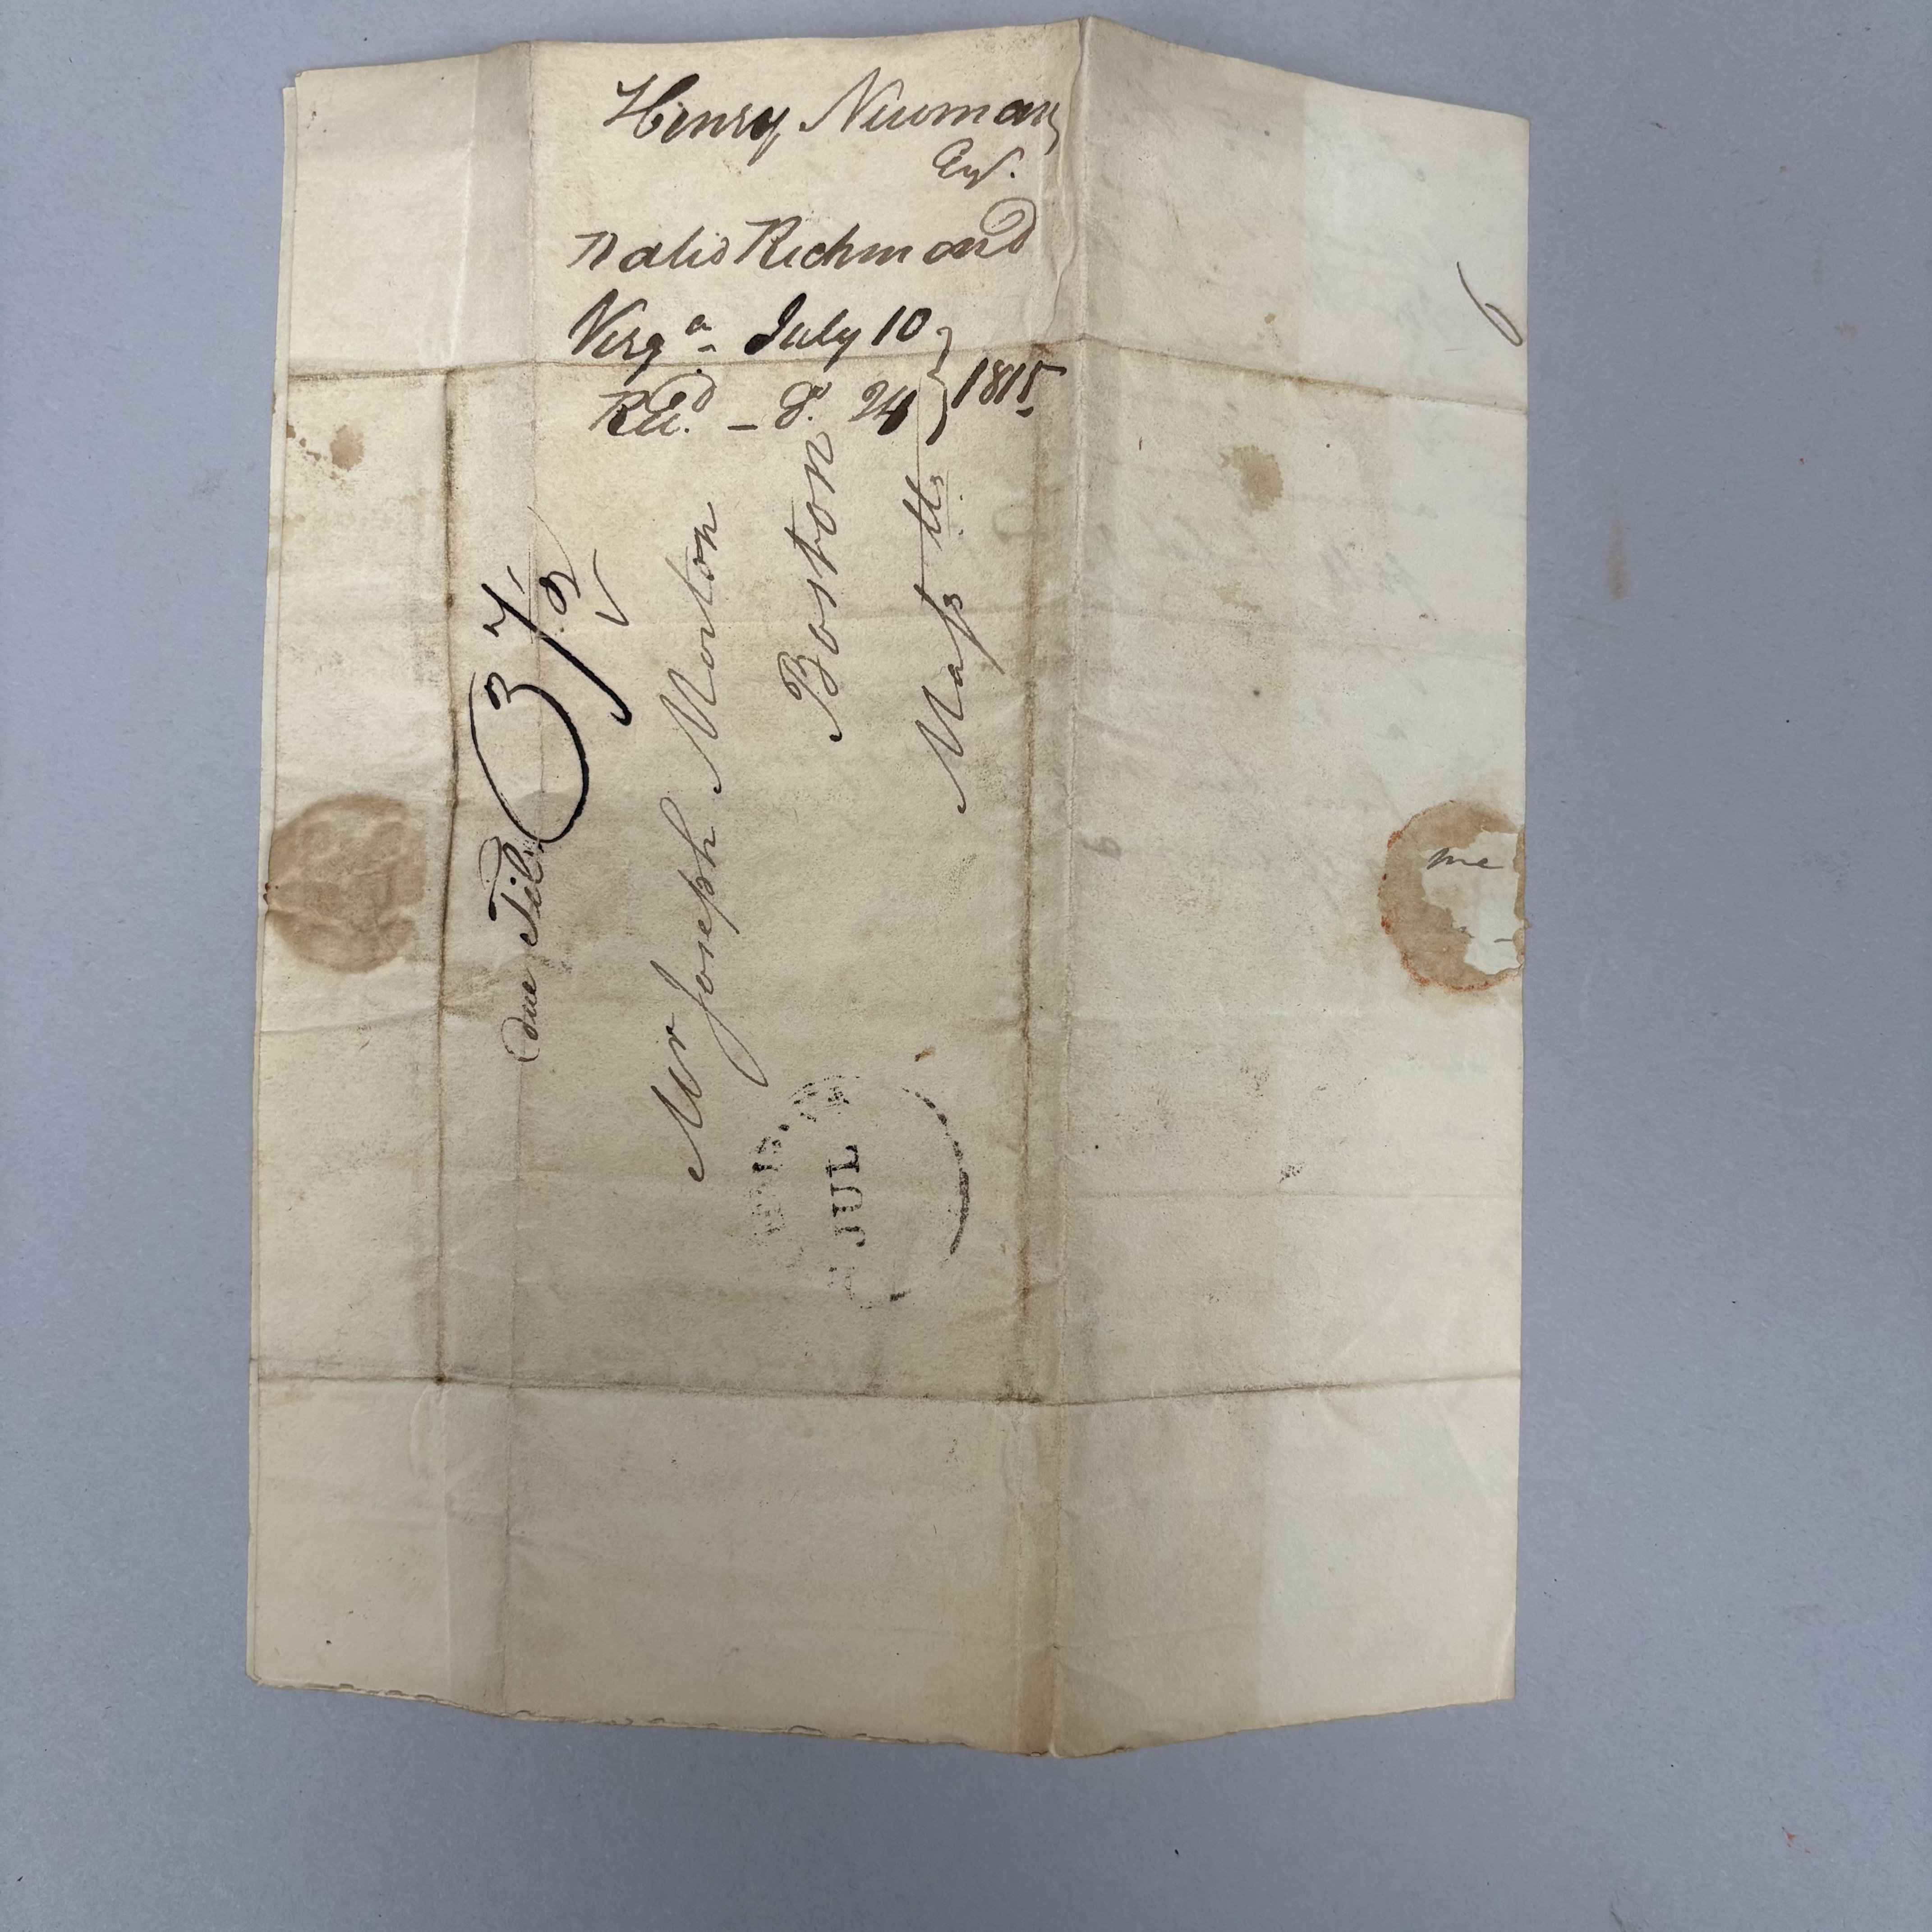 Henry Newman
Esqr.
Dated Richmond
Virga. July 10
Recd. - Do. 24 } 1815
37½
due
Mr Joseph Morton
Boston
Massts
JUL
me
6